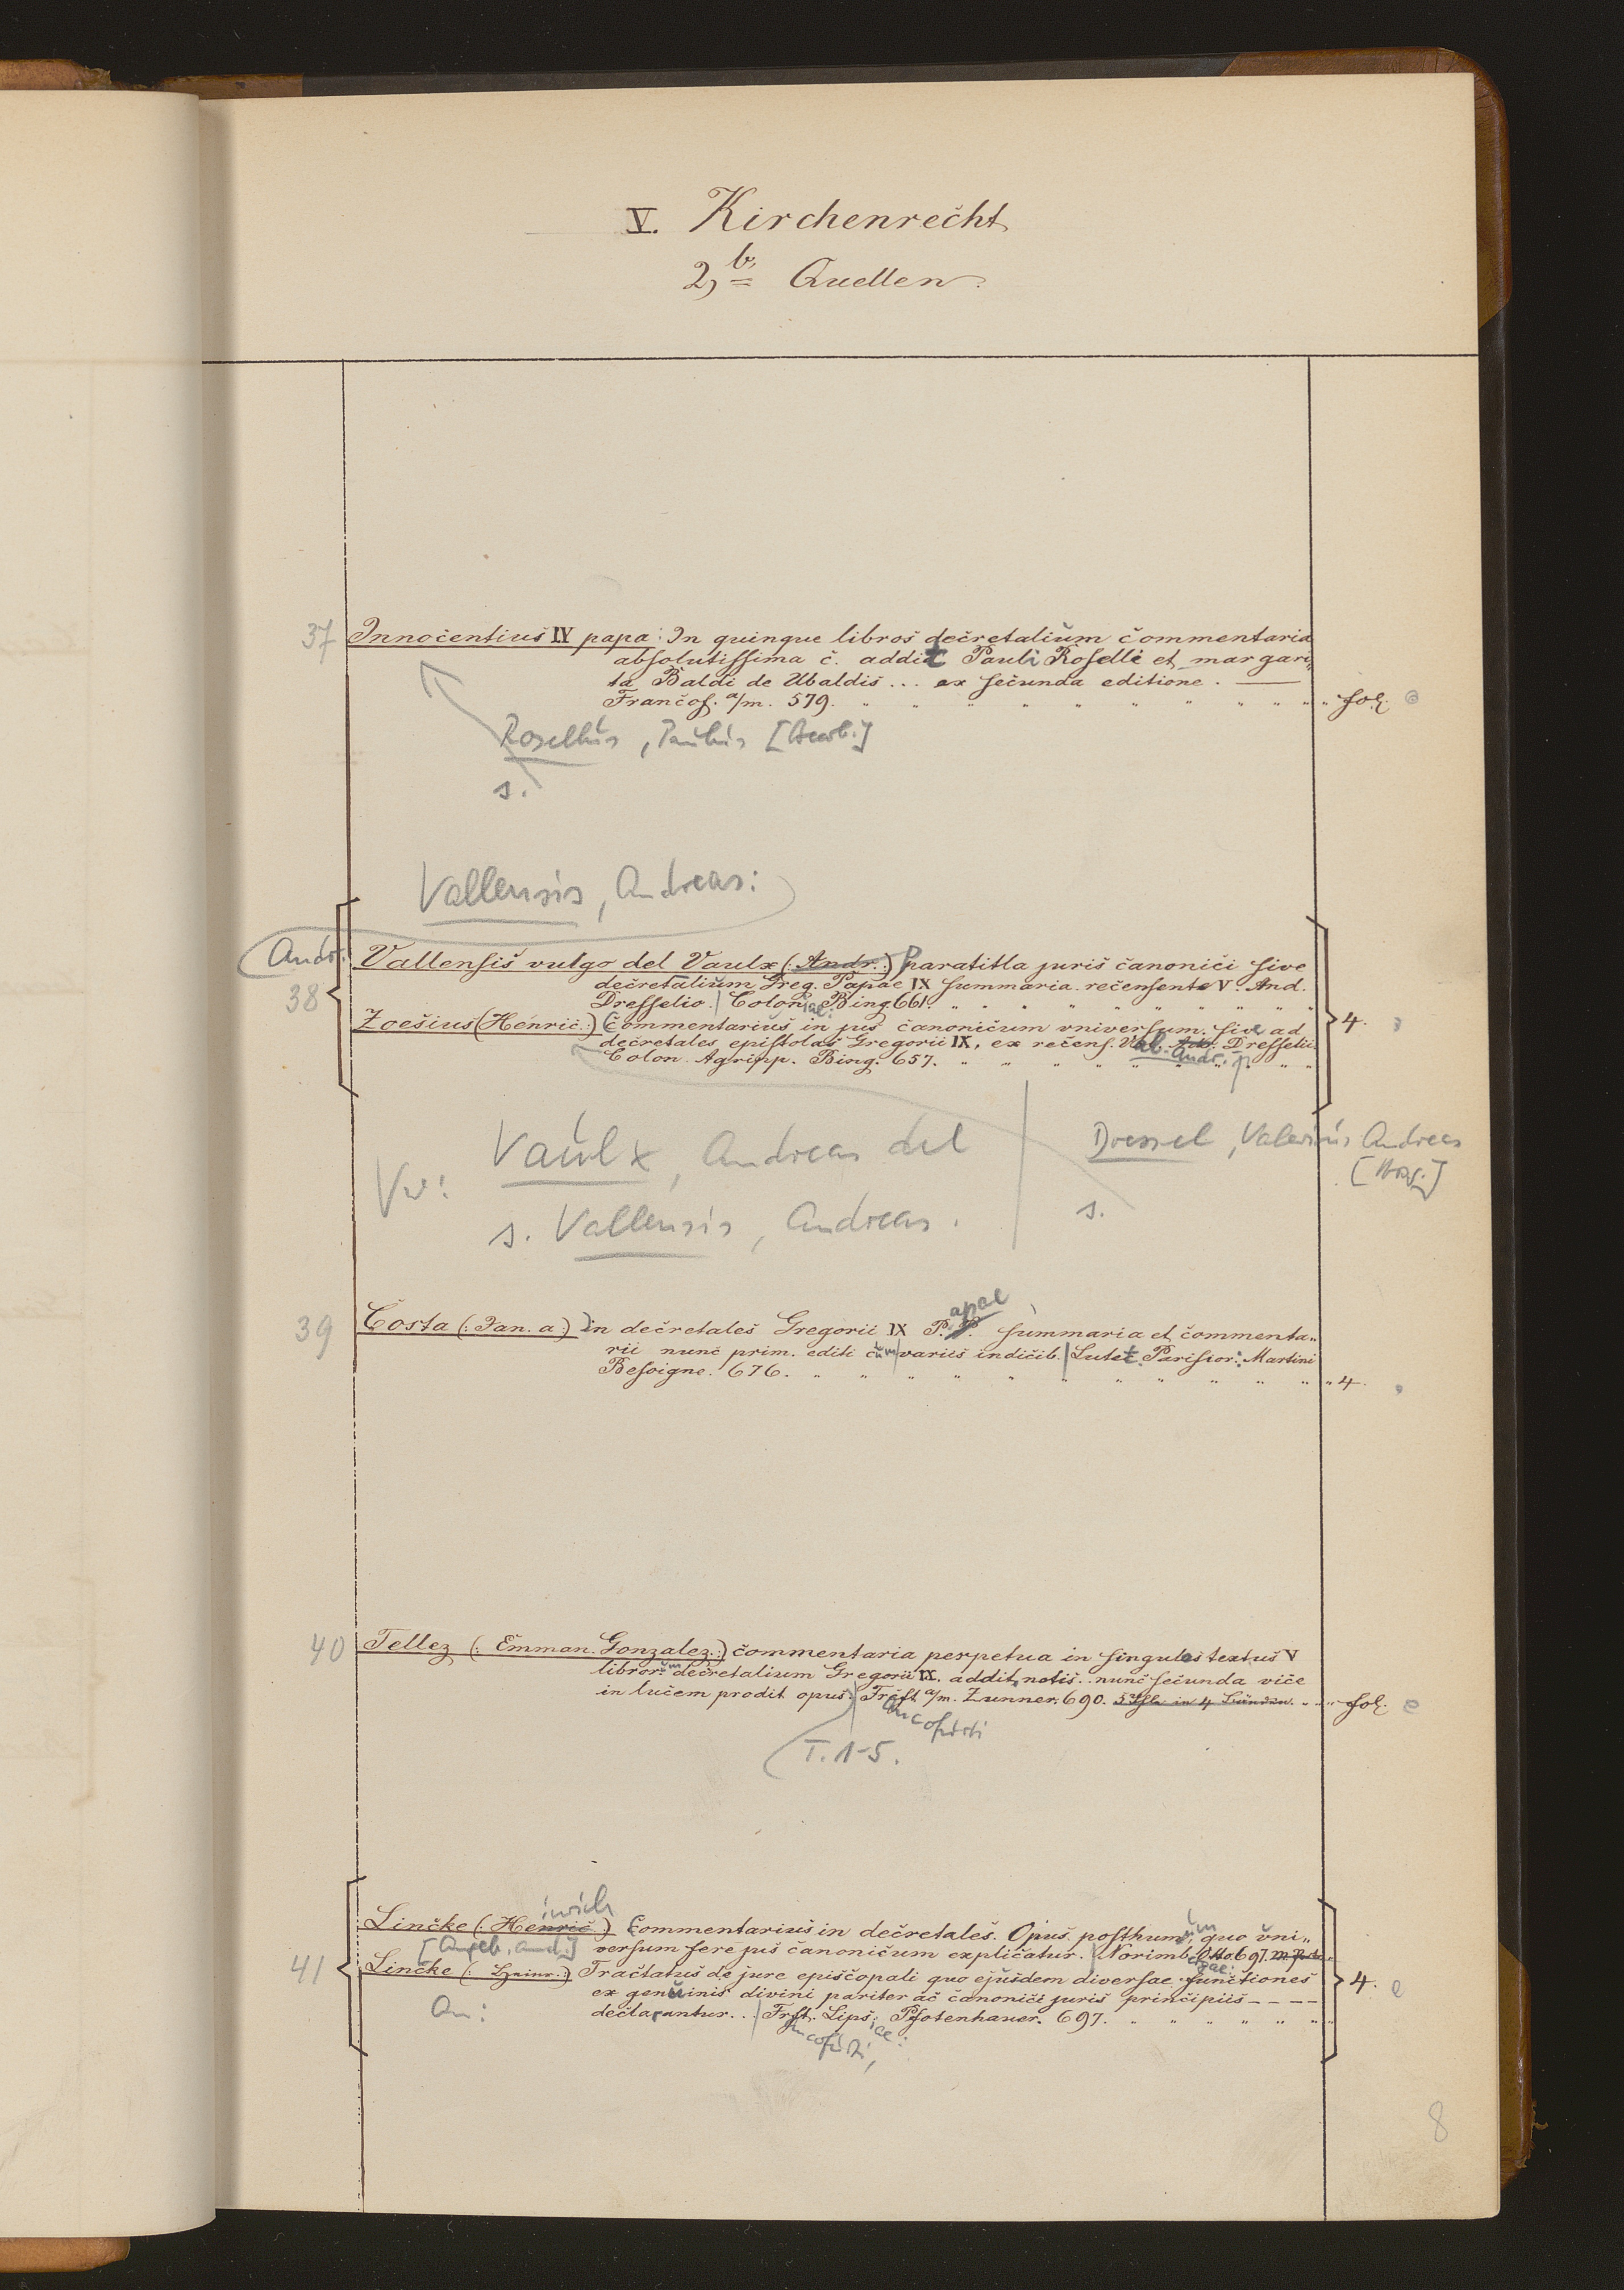 V. Kirchenrecht
2, b, Quellen.
37 Innocentius IV papa: In quinque libros decretalium commentaria
absolutissima c. addit Pauli Roselli et margari„
ta Baldi de Ubaldis ... ex secunda editione. —
Francof. a/m. 579. „ „ „ „ „ „ „ „ „ „ fol.
Rosellus, Paulus
s.
Vallensis, Andreas:
Andr. Vallensis vulgo del Vaulx (Andr.:) Paratitla juris canonici sive
38 decretalium Greg. Papae IX summaria recensente V. And.
Dresselio. | Coloniae: Bing 661. „ „ „ „ „ „ „ „
Zoesius (Henric.:) Commentarius in jus canonicum universum. sive ad 4.
decretales epistolas Gregorii IX, ex recens. Val. Andr. Dresselii
Colon. Agripp. Bing. 657. „ „ „ „ „ „ „ „
Vaulx, Andreas del | Dressel, Valerius Andreas
Vw: [Hrsg.]
s. Vallensis, Andreas. s.
39 Costa (: Jan. a:) in decretales Gregorii IX P.P. apae summaria et commenta„
rii nunc prim. editi cum variis indicib. | Lutet. Parisior: Martini
Besoigne. 676. „ „ „ „ „ „ „ „ „ „ „ 4.
40 Tellez (: Emman. Gonzalez:) commentaria perpetua in singulos textus V
libror.um decretalium Gregorii IX. addit. notis.. nunc secunda vice
in lucem prodit opus. | Frcft a/m. Zunner. 690. „ „ fol.
ancofurti
T. 1-5.
inrich
Lincke (: Henric:) Commentarius in decretales. Opus posthum.um quo uni„
versum fere jus canonicum explicatur. | Norimbergae: Otto. 697.
41 Lincke (: Heinr.:) Tractatus de jure episcopali quo ejusdem diversae functiones 4.
ex genuinis divini pariter ac canonici juris principiis - - - -
An: declarantur... | Frft. Lips. Pfotenhauer. 697. „ „ „ „ „ „
ancofurti, iae:
8